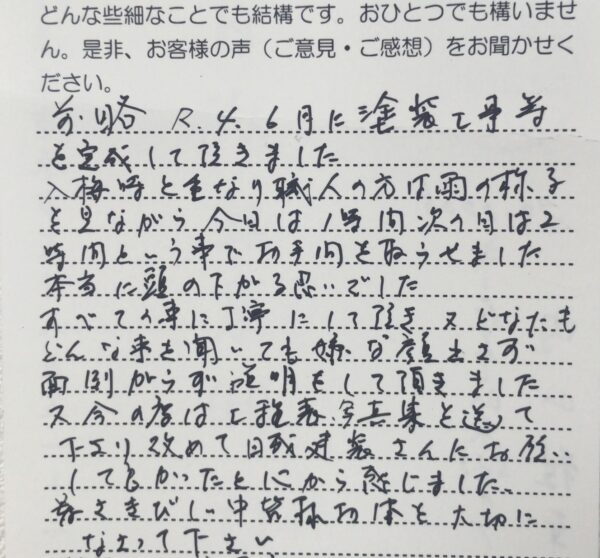 どんな些細なことでも結構です。おひとつでも構いませ
ん。是非、お客様の声(ご意見・ご感想)をお聞かせく
ださい。
前略 R.4.6月に塗装工事等
を完成して頂きました
入梅時と重なり職人の方は雨の様子
を見ながら今日は1時間次の日は2
時間という事でお手間を取らせました
本当に頭の下がる思いでした
すべての事に丁寧にして頂き又どなたも
どんな事を聞いても嫌な顔もせず
面倒がらず説明をして頂きました
又今の度は工程表写真集と送って
下さり改めて日成建装さんにお願い
してよかったと心から感じました
暑さきびしい中皆様お体を大切に
なさって下さい